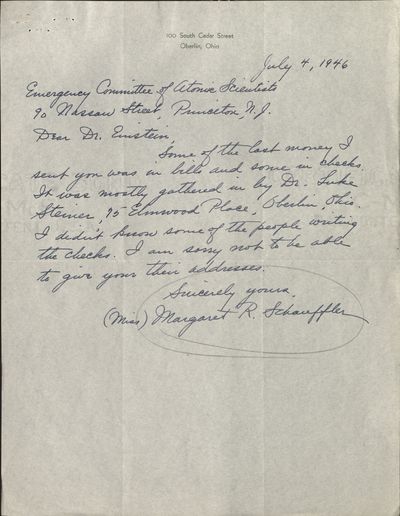 100 South Cedar Street
Oberlin, Ohio
July 4, 1946
Emergency Committee of Atomic Scientists
90 Nassau Street, Princeton, N.J.
Dear Dr. Einstein,
Some of the last money I
sent you was in bills and some in checks.
It was mostly gathered in by Dr. Luke
Steiner, 95 Elmwood Place, Oberlin, Ohio.
I didn't know some of the people writing
the checks. I am sorry not to be able
to give your their addresses.
Sincerely yours,
(Miss) Margaret R. Schauffler